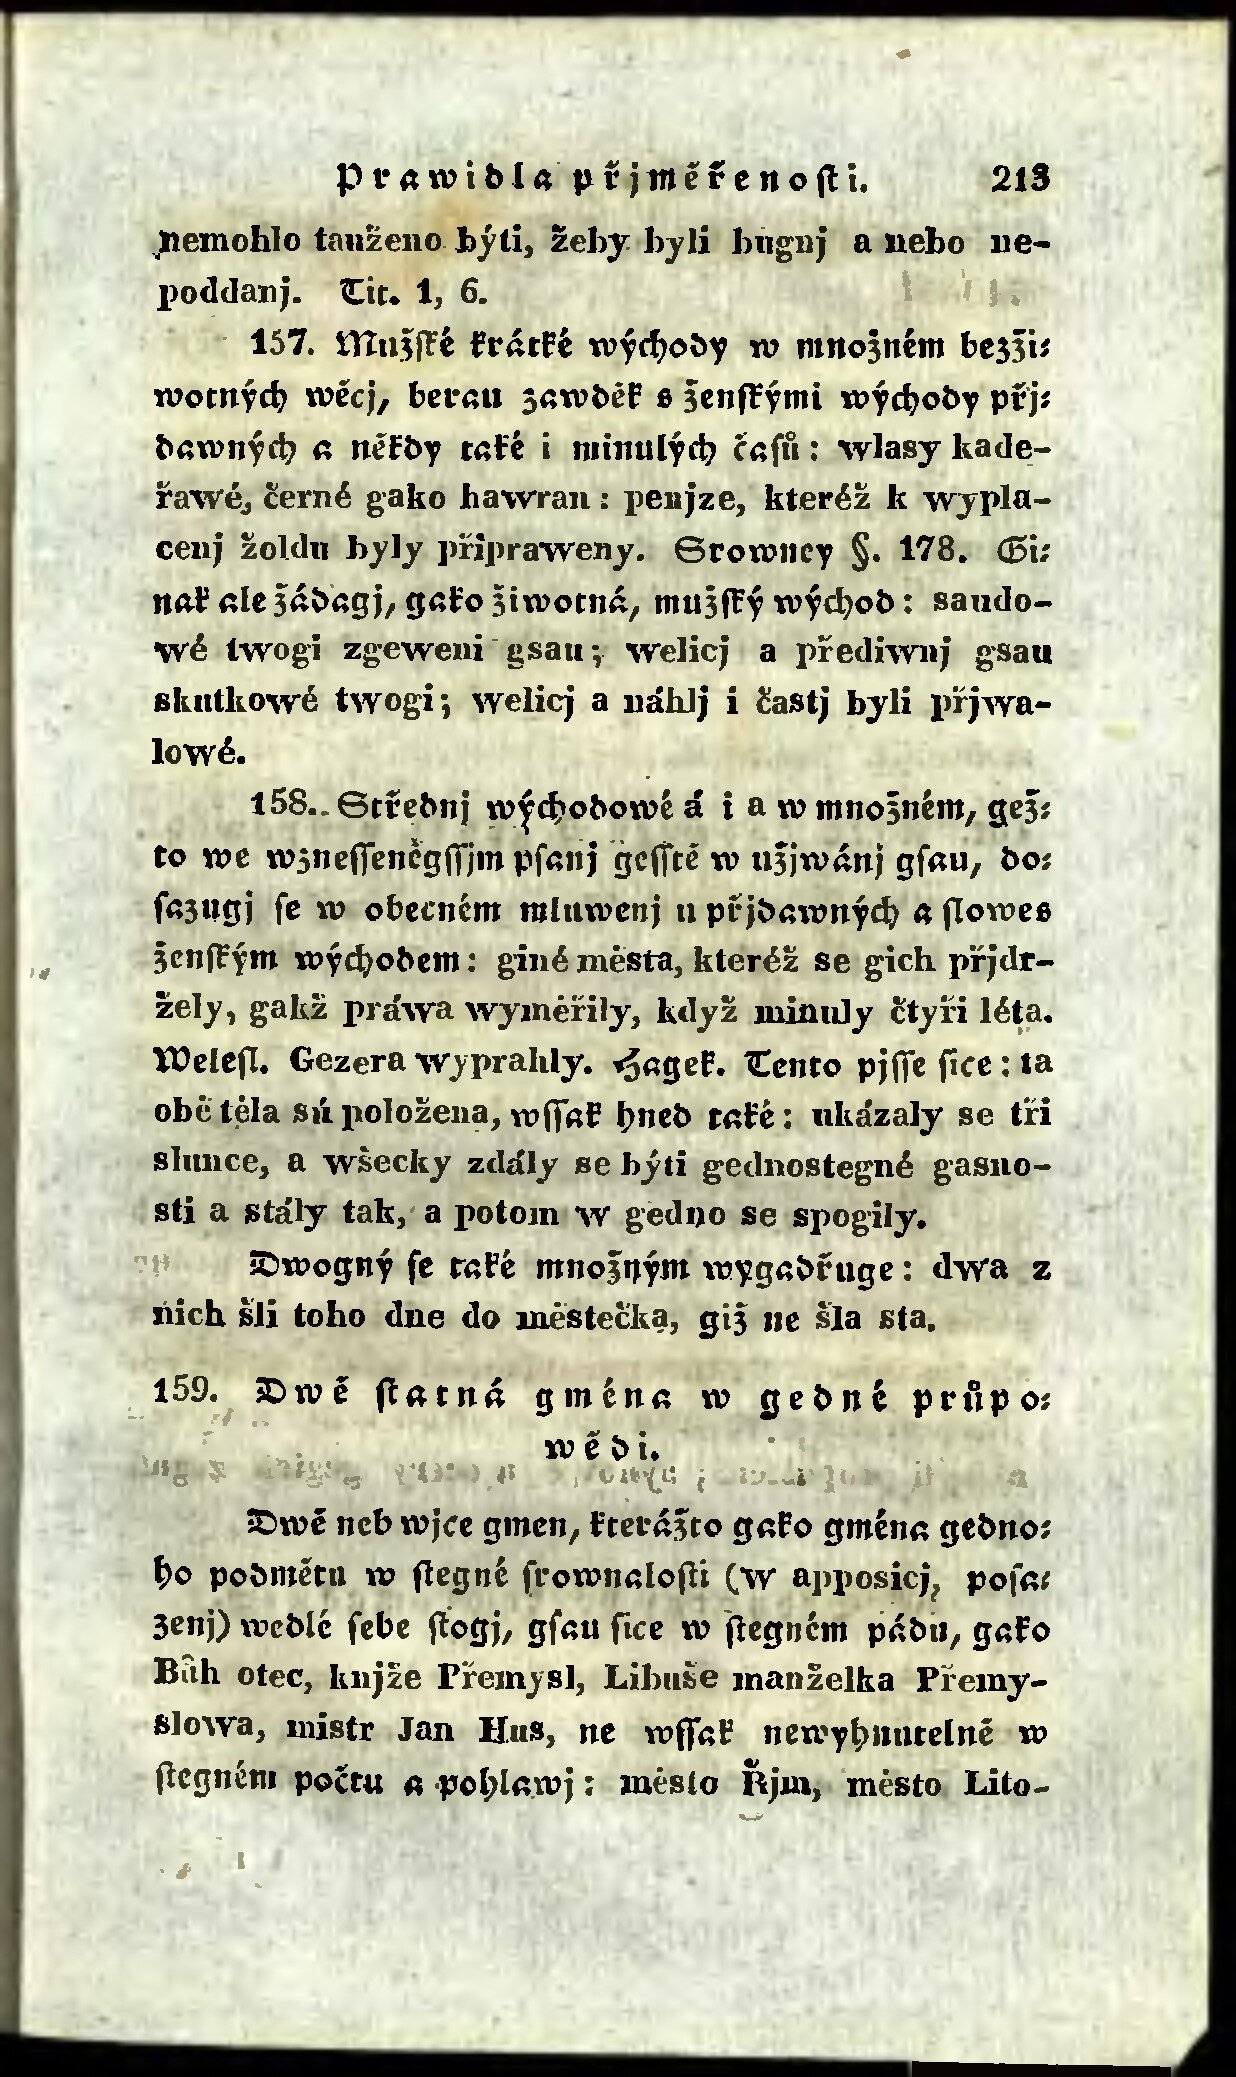 Prawidla přjměřenosti. 213
nemohlo tauženo býti, žeby byli bugnj a nebo ne-
poddanj. Tit. 1, 6.
157. Mužské krátké východy w množném bezži-
wotných wěcj, berau zawděk s ženskými východy přj-
dawných a někdy také i minulých časů: wlasy kade-
řawé, černé gako hawran: penjze, kteréž k wypla-
cenj žoldu byly připraweny. Srowney §. 178. Gi-
nak ale žádagj, gako žiwotná, mužský wýchod: saudo-
wé twogi zgeweni gsau; welicj a přediwnj gsau
skutkowé twogi; welicj a náhlj i častj byli přjwa-
lowé.
158. Střednj wýchodowé á i a w množném, gež-
to we wznesseněgssjm psanj gessté w užjwánj gsau, do-
sazugj se w obecném mluwenj u přjdawných a slowes
ženským wýchodem: giné města, kteréž se gich přjdr-
žely, gakž práwa wyměřily, když minuly čtyři léta.
Welesl. Gezera wyprahly. Hagek. Tento pjsse sice: ta
obě těla sú položena, wssak hned také: ukázaly se tři
slunce, a wšecky zdály se býti gednostegné gasno-
sti a stály tak, a potom w gedno se spogily.
Dwogný se také množným wygadřuge: dwa z
nich šli toho dne do městečka, giž ne šla sta.
159. Dwě statná gména w gedné průpo-
wědi.
Dwě neb wjce gmen, kterážto gako gména gedno-
ho podmětu w stegné srownalosti (w apposicj, posa-
zenj) wedlé sebe stogj, gsau sice w stegném pádu, gako
Bůh otec, knjže Přemysl, Libuše manželka Přemy-
slowa, mistr Jan Hus, ne wssak newyhnutelně w
stegném počtu a pohlawj: město Řjm, město Lito-